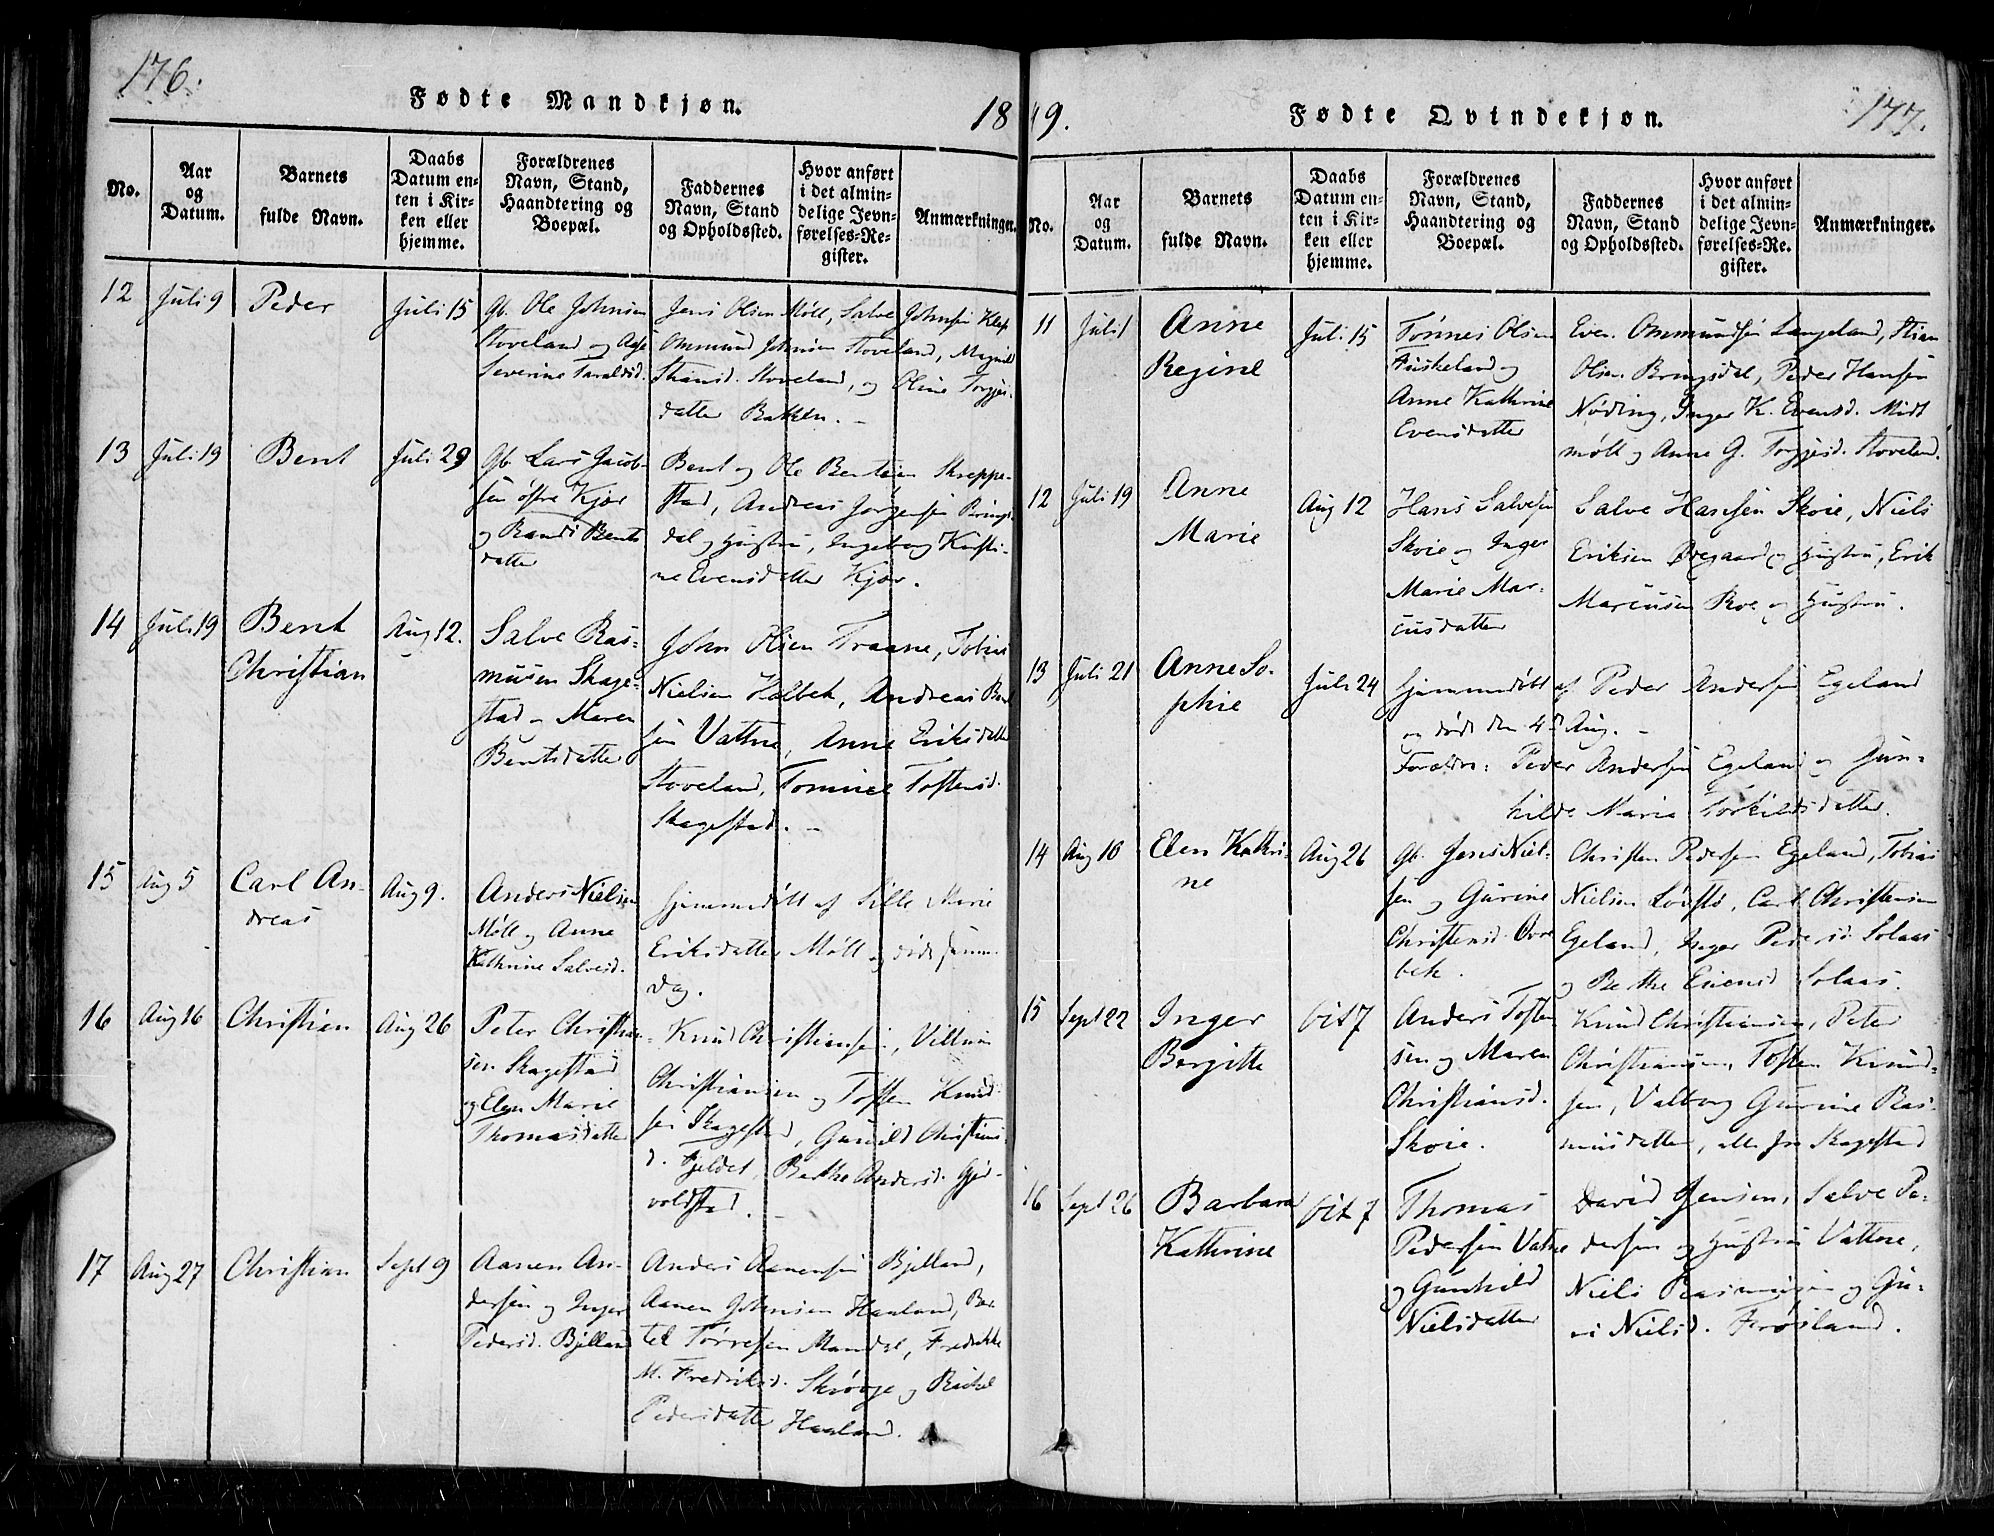 176.
Fødte Mandkjøn.
18
No.
Aar
og
Datum.
Barnets
fulde Navn.
Daabs
Datum en-
ten i Kir-
ken eller
hjemme.
Forældrenes
Navn, Stand,
Haandtering og
Boepæl.
Faddernes
Navn, Stand
og Opholdssted.
Hvor anført
i det almin-
delige Jevn-
førelses-Re-
gister.
Anmærkninger.
12
Juli 9
Peder
Juli 15
Gb. Ole Johnsen
Stoveland og Aase
Severine Taraldsd.
Jens Olsen Möll, Salve Johnsen Klep
Ommund Johnsen Stoveland, Magnild
Stiansd. Stoveland, og Oline Torgjus-
datter Bakken. –
13
Juli 19
Bent
Juli 29
Gb. Lars Jacob-
sen öfre Kjær
og Randi Bents
datter
Bent og Ole Bentsen Skeppe-
stad, Andreas Jörgensen Brings-
dal og Hustru, Ingeborg Kirsti-
ne Evensdatter Kjær.
14
Juli 19
Bent
Christian
Aug 12.
Salve Ras-
musen Skage-
stad – Maren
Bentsdatter
John Olsen Traane, Tobias
Nielsen Holbek, Andreas Bent
sen Vattne, Anne Eriksdatter
Stoveland, Tomine Tostensd.
Skagestad. –
15
Aug 5
Carl An-
dreas
Aug 9.
Anders Nielsen
Möll og Anne
Kathrine Salvesd.
hjemmedöbt af Sille Marie
Eriksdatter Möll og död samme
dag.
16
Aug 16
Christian
Aug 26
Peter Christian-
sen Skagestad
og Elen Marie
Thomasdatter
Knud Christiansen, Villum
Christiansen og Tosten Knud-
sen Skagestad, Gunild Christians-
d. Fjeldet, Berthe Andersd. Gjer-
voldstad. –
17
Aug 27
Christian
Sept 9
Aanen An-
dersen og Inger
Pedersd. Bjelland
Anders Aanensen Bjelland,
Aanen Johnsen Haaland, Ber-
tel Törresen Mandal, Fredrikke
M. Fredriksd. Skrövje og Rachel
Pedersdatter Haaland.
49.
Fødte Qvindekjøn.
177.
No.
Aar
og
Datum.
Barnets
fulde Navn.
Daabs
Datum en-
ten i Kir-
ken eller
hjemme.
Forældrenes
Navn, Stand,
Haandtering og
Boepæl.
Faddernes
Navn, Stand
og Opholdssted.
Hvor anført
i det almin-
delige Jevn-
førelses-Re-
gister.
Anmærkninger.
11
Juli 1
Anne
Regine
Juli 15
Tönnes Olsen
Fuskeland og
Anne Kathrine
Evensdatter
Even Ommundsen Langeland, Stian
Olsen Bringsdal, Peder Hansen
Nöding, Inger K. Evensd. Midt
möll og Anne G. Torgjusd. Stoveland.
12
Juli 19
Anne
Marie
Aug 12
Hans Salvesen
Skoie og Inger
Marie Mar-
cusdatter
Salve Hansen Skoie, Niels
Eriksen Ødegaard og Hustru, Erik
Marcusen Roe og Hustru.
13
Juli 21
Anne So-
phie
Juli 24
hjemmedöbt af Peder Andersen Egeland
og död den 4de Aug. –
Forældre: Peder Andersen Egeland og Gun-
hilde Marie Torkildsdatter.
14
Aug 10
Elen Kathri-
ne
Aug 26
Gb. Jens Niel-
sen og Gurine
Christensd. Ovre
bek.
Christen Pedersen Egeland, Tobias
Nielsen Lövstö, Carl Christensen
Egeland, Inger Pedersd. Solaas
og Berthe Evensd Solaas.
15
Sept 22
Inger
Bergitte
Oct 7
Anders Tosten
sen og Maren
Christiansd.
Skoie.
Knud Christiansen, Peter
Christiansen, Tosten Knud-
sen, Valborg Gurine Ras-
musdatter, alle fra Skagestad
16
Sept 26
Barbara
Kathrine
Oct 7
Thomas
Pedersen Vatne
og Gunhild
Nielsdatter
David Jensen, Salve Pe-
dersen og Hustru Vattne,
Niels Rasmusen og Gu-
ri Nielsd. Frösland.